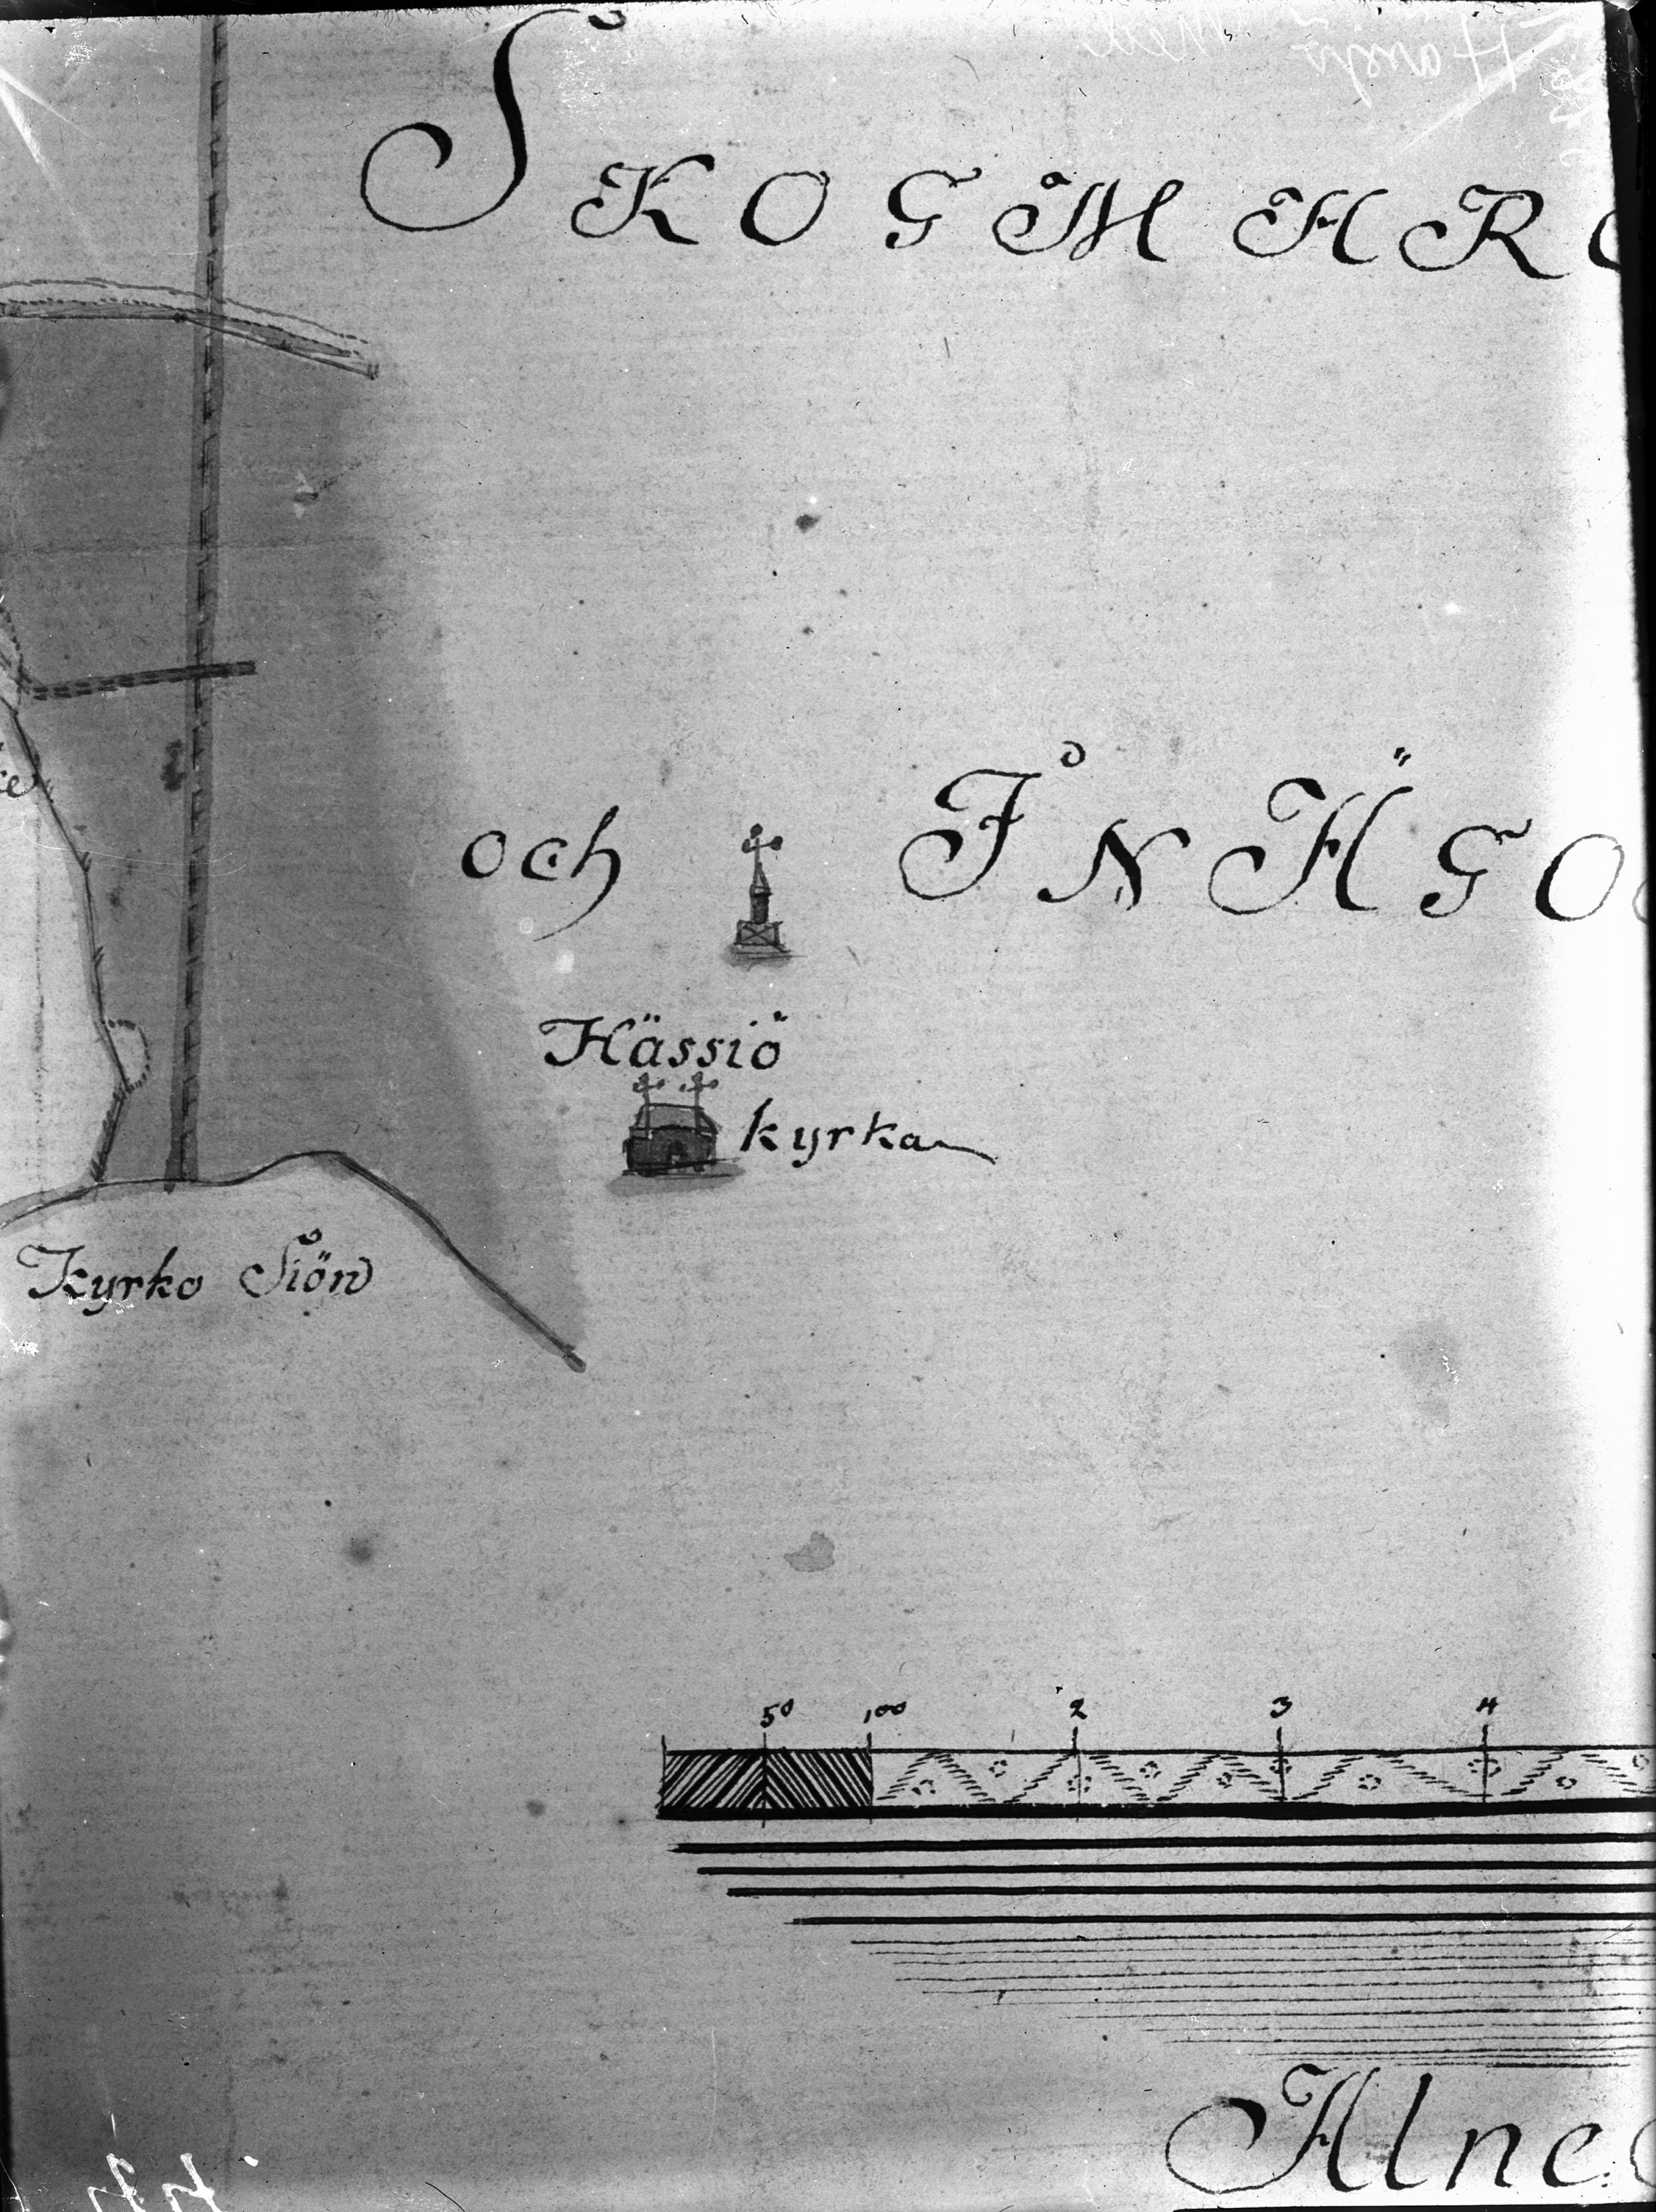 SKOGMAR
och INÄGO
Hässiö
kyrka
Kyrko Siön
50 100 2 3 4
Alne